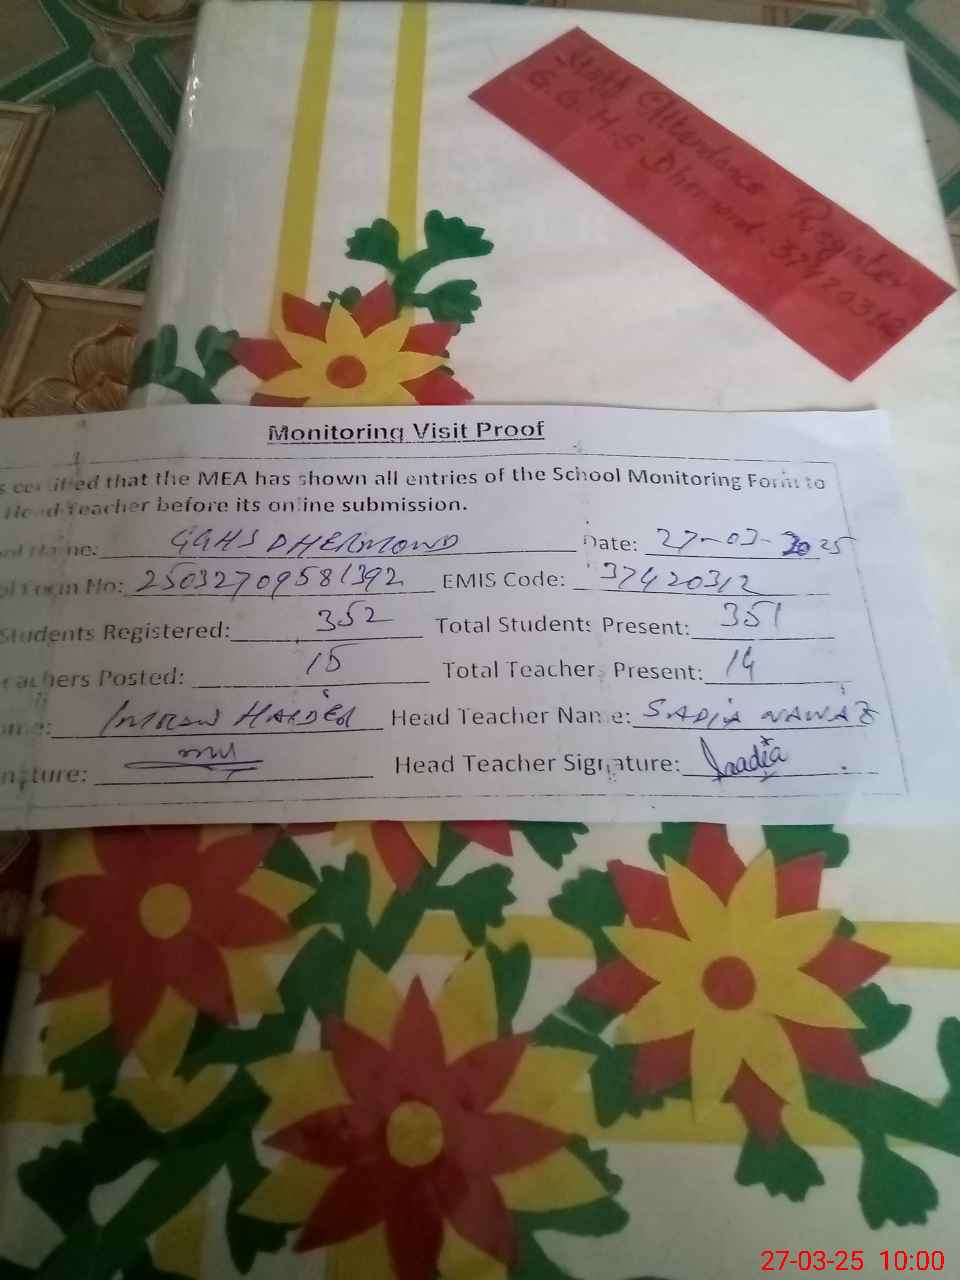 Staff Attendance Register
G.G.H.S Dhermond. 37420312
Monitoring Visit Proof
certified that the MEA has shown all entries of the School Monitoring Form to
Head Teacher before its online submission.
Name: GGHS DHERMOND Date: 27-03-2025
Form No: 25032709581392 EMIS Code: 37420312
Students Registered: 352 Total Students Present: 351
Teachers Posted: 15 Total Teachers Present: 14
IMRAN HAIDER Head Teacher Name: SADIA NAWAZ
Head Teacher Signature: Saadia
27-03-25 10:00